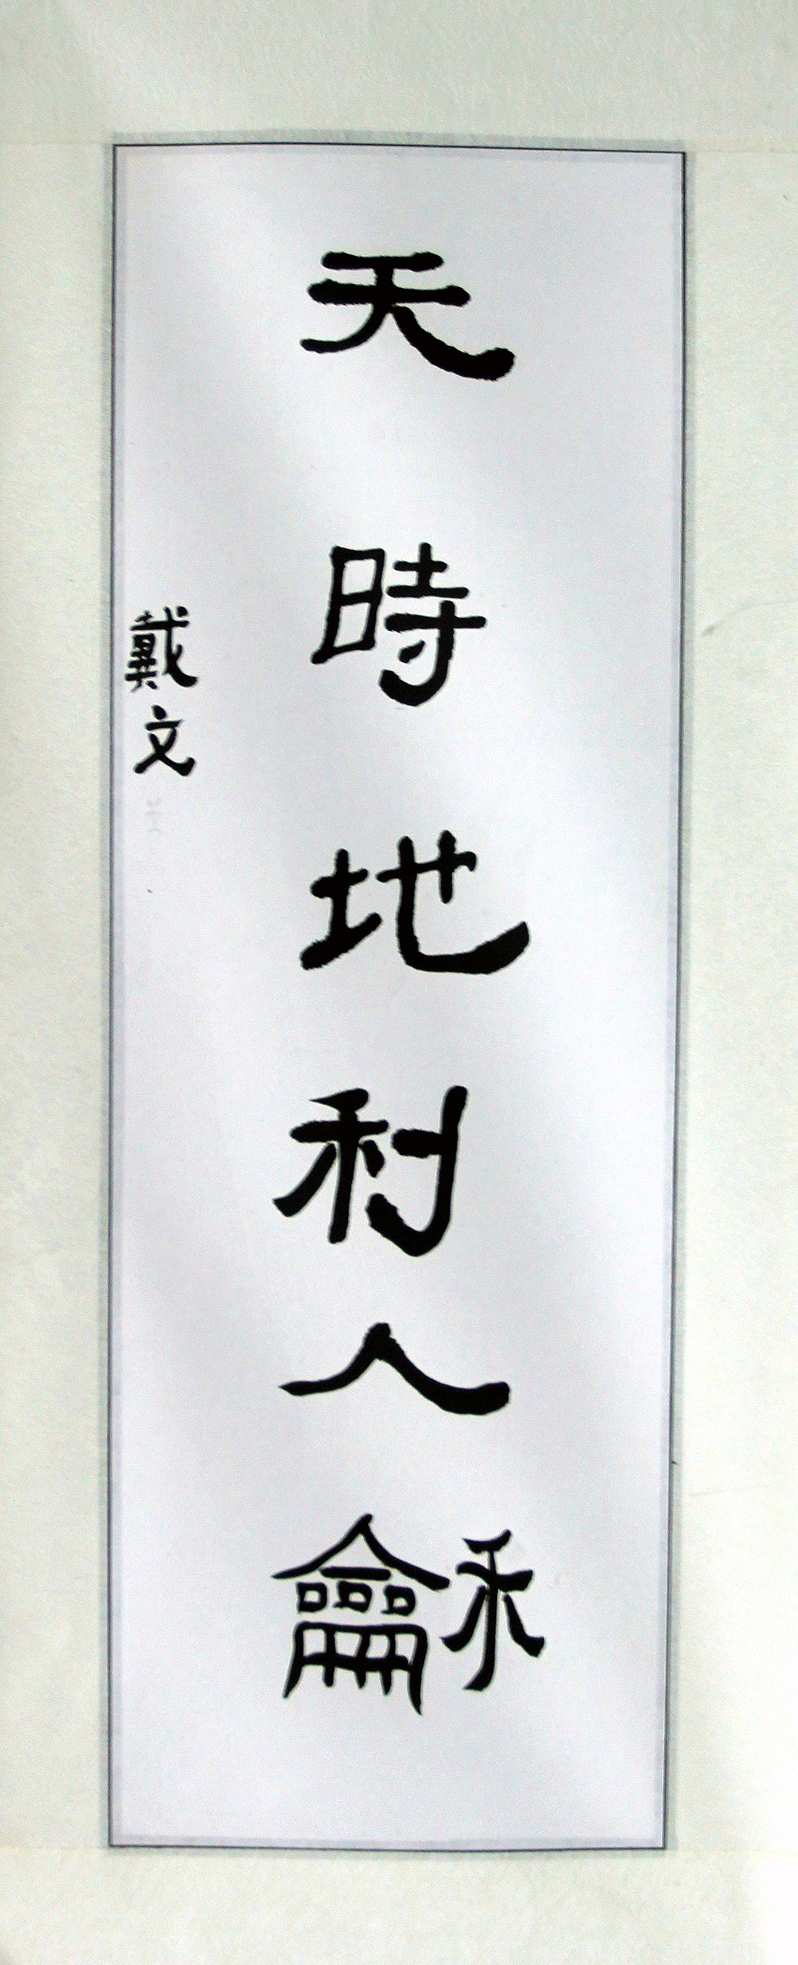 天時地利人龢
戴文